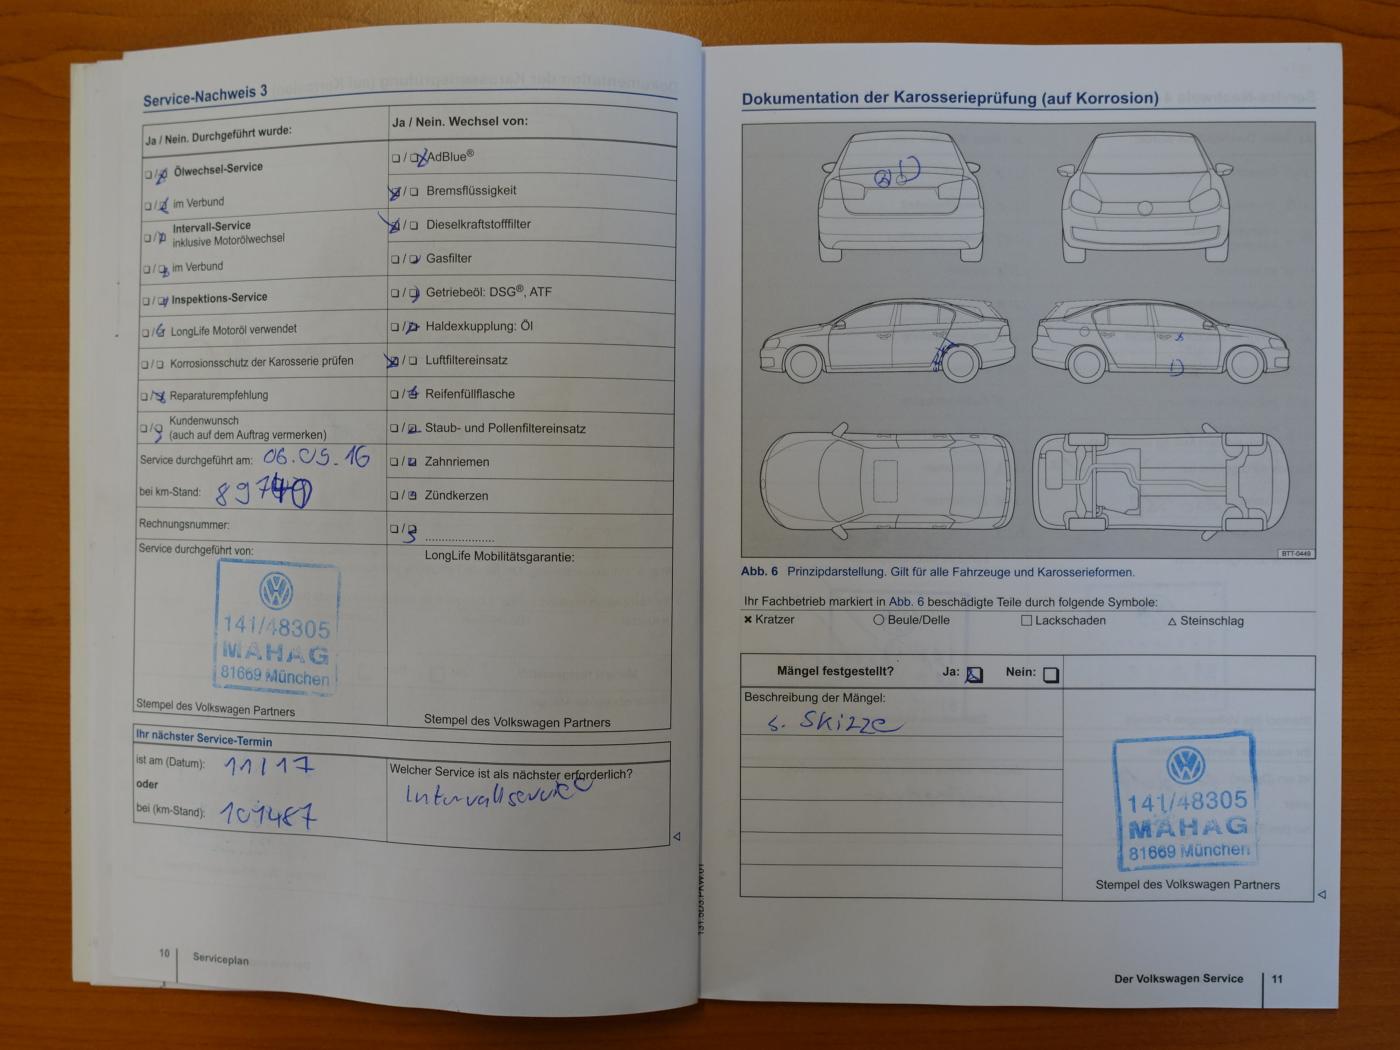 Service-Nachweis 3
Ja / Nein. Durchgeführt wurde:
Ölwechsel-Service
im Verbund
Intervall-Service
inklusive Motorölwechsel
im Verbund
Inspektions-Service
LongLife Motoröl verwendet
Korrosionsschutz der Karosserie prüfen
Reparaturempfehlung
Kundenwunsch
(auch auf dem Auftrag vermerken)
Service durchgeführt am: 06.09.16
bei km-Stand:
Rechnungsnummer:
Service durchgeführt von:
141/48305
MAHAG
81669 München
Stempel des Volkswagen Partners
Ja / Nein. Wechsel von:
AdBlue®
Bremsflüssigkeit
Dieselkraftstofffilter
Gasfilter
Getriebeöl: DSG®, ATF
Haldexkupplung: Öl
Luftfiltereinsatz
Reifenfüllflasche
Staub- und Pollenfiltereinsatz
Zahnriemen
Zündkerzen
LongLife Mobilitätsgarantie:
Stempel des Volkswagen Partners
Ihr nächster Service-Termin
ist am (Datum): 11/17
oder
bei (km-Stand): 101487
Welcher Service ist als nächster erforderlich?
Intervallservice
10 Serviceplan
Dokumentation der Karosserieprüfung (auf Korrosion)
BTT-0449
Abb. 6 Prinzipdarstellung. Gilt für alle Fahrzeuge und Karosserieformen.
Ihr Fachbetrieb markiert in Abb. 6 beschädigte Teile durch folgende Symbole:
✖ Kratzer ○ Beule/Delle □ Lackschaden △ Steinschlag
Mängel festgestellt? Ja: Nein:
Beschreibung der Mängel:
s. Skizze
141/48305
MAHAG
81669 München
Stempel des Volkswagen Partners
Der Volkswagen Service 11